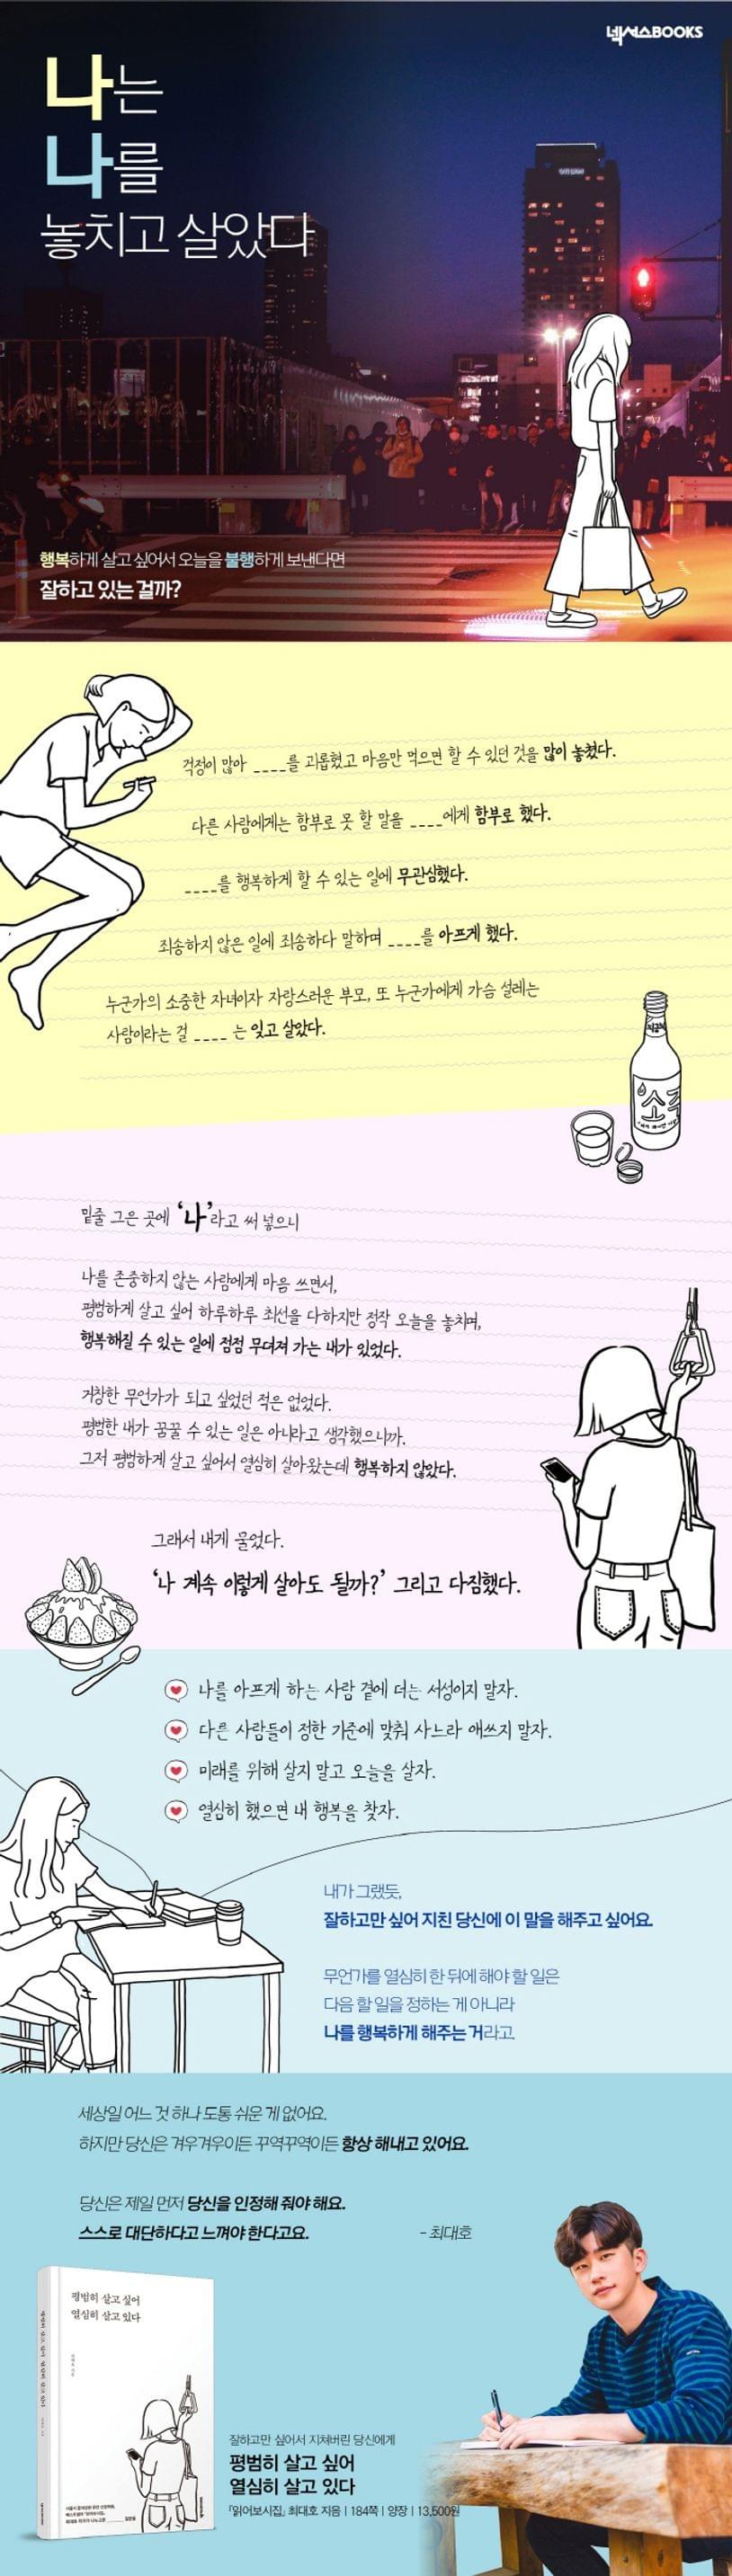 넥서스BOOKS
나는
나를
놓치고 살았다
행복하게 살고 싶어서 오늘을 불행하게 보낸다면
잘하고 있는 걸까?
걱정이 많아 ____를 괴롭혔고 마음만 먹으면 할 수 있던 것을 많이 놓쳤다.
다른 사람에게는 함부로 못 할 말을 ____에게 함부로 했다.
____를 행복하게 할 수 있는 일에 무관심했다.
죄송하지 않은 일에 죄송하다 말하며 ____를 아프게 했다.
누군가의 소중한 자녀이자 자랑스러운 부모, 또 누군가에게 가슴 설레는
사람이라는 걸 ____ 는 잊고 살았다.
소주
밑줄 그은 곳에 ‘나’라고 써 넣으니
나를 존중하지 않는 사람에게 마음 쓰면서,
평범하게 살고 싶어 하루하루 최선을 다하지만 정작 오늘을 놓치며,
행복해질 수 있는 일에 점점 무뎌져 가는 내가 있었다.
거창한 무언가가 되고 싶었던 적은 없었다.
평범한 내가 꿈꿀 수 있는 일은 아니라고 생각했으니까.
그저 평범하게 살고 싶어서 열심히 살아왔는데 행복하지 않았다.
그래서 내게 물었다.
‘나 계속 이렇게 살아도 될까?’ 그리고 다짐했다.
나를 아프게 하는 사람 곁에 더는 서성이지 말자.
다른 사람들이 정한 기준에 맞춰 사느라 애쓰지 말자.
미래를 위해 살지 말고 오늘을 살자.
열심히 했으면 내 행복을 찾자.
내가 그랬듯,
잘하고만 싶어 지친 당신에 이 말을 해주고 싶어요.
무언가를 열심히 한 뒤에 해야 할 일은
다음 할 일을 정하는 게 아니라
나를 행복하게 해주는 거라고.
세상일 어느 것 하나 도통 쉬운 게 없어요.
하지만 당신은 겨우겨우이든 꾸역꾸역이든 항상 해내고 있어요.
당신은 제일 먼저 당신을 인정해 줘야 해요.
스스로 대단하다고 느껴야 한다고요.
- 최대호
평범히 살고 싶어
열심히 살고 있다
평범히 살고 싶어 열심히 살고 있다
잘하고만 싶어서 지쳐버린 당신에게
평범히 살고 싶어
열심히 살고 있다
『읽어보시집』 최대호 지음 | 184쪽 | 양장 | 13,500원